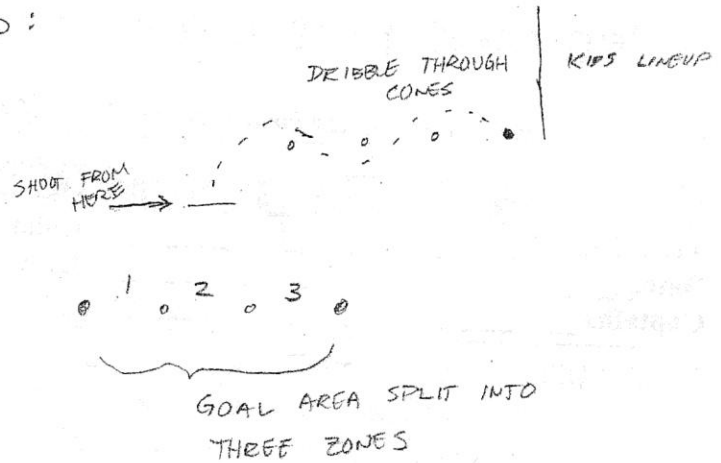 D:
DRIBBLE THROUGH
CONES
KIDS LINEUP
SHOOT FROM
HERE
1 2 3
GOAL AREA SPLIT INTO
THREE ZONES